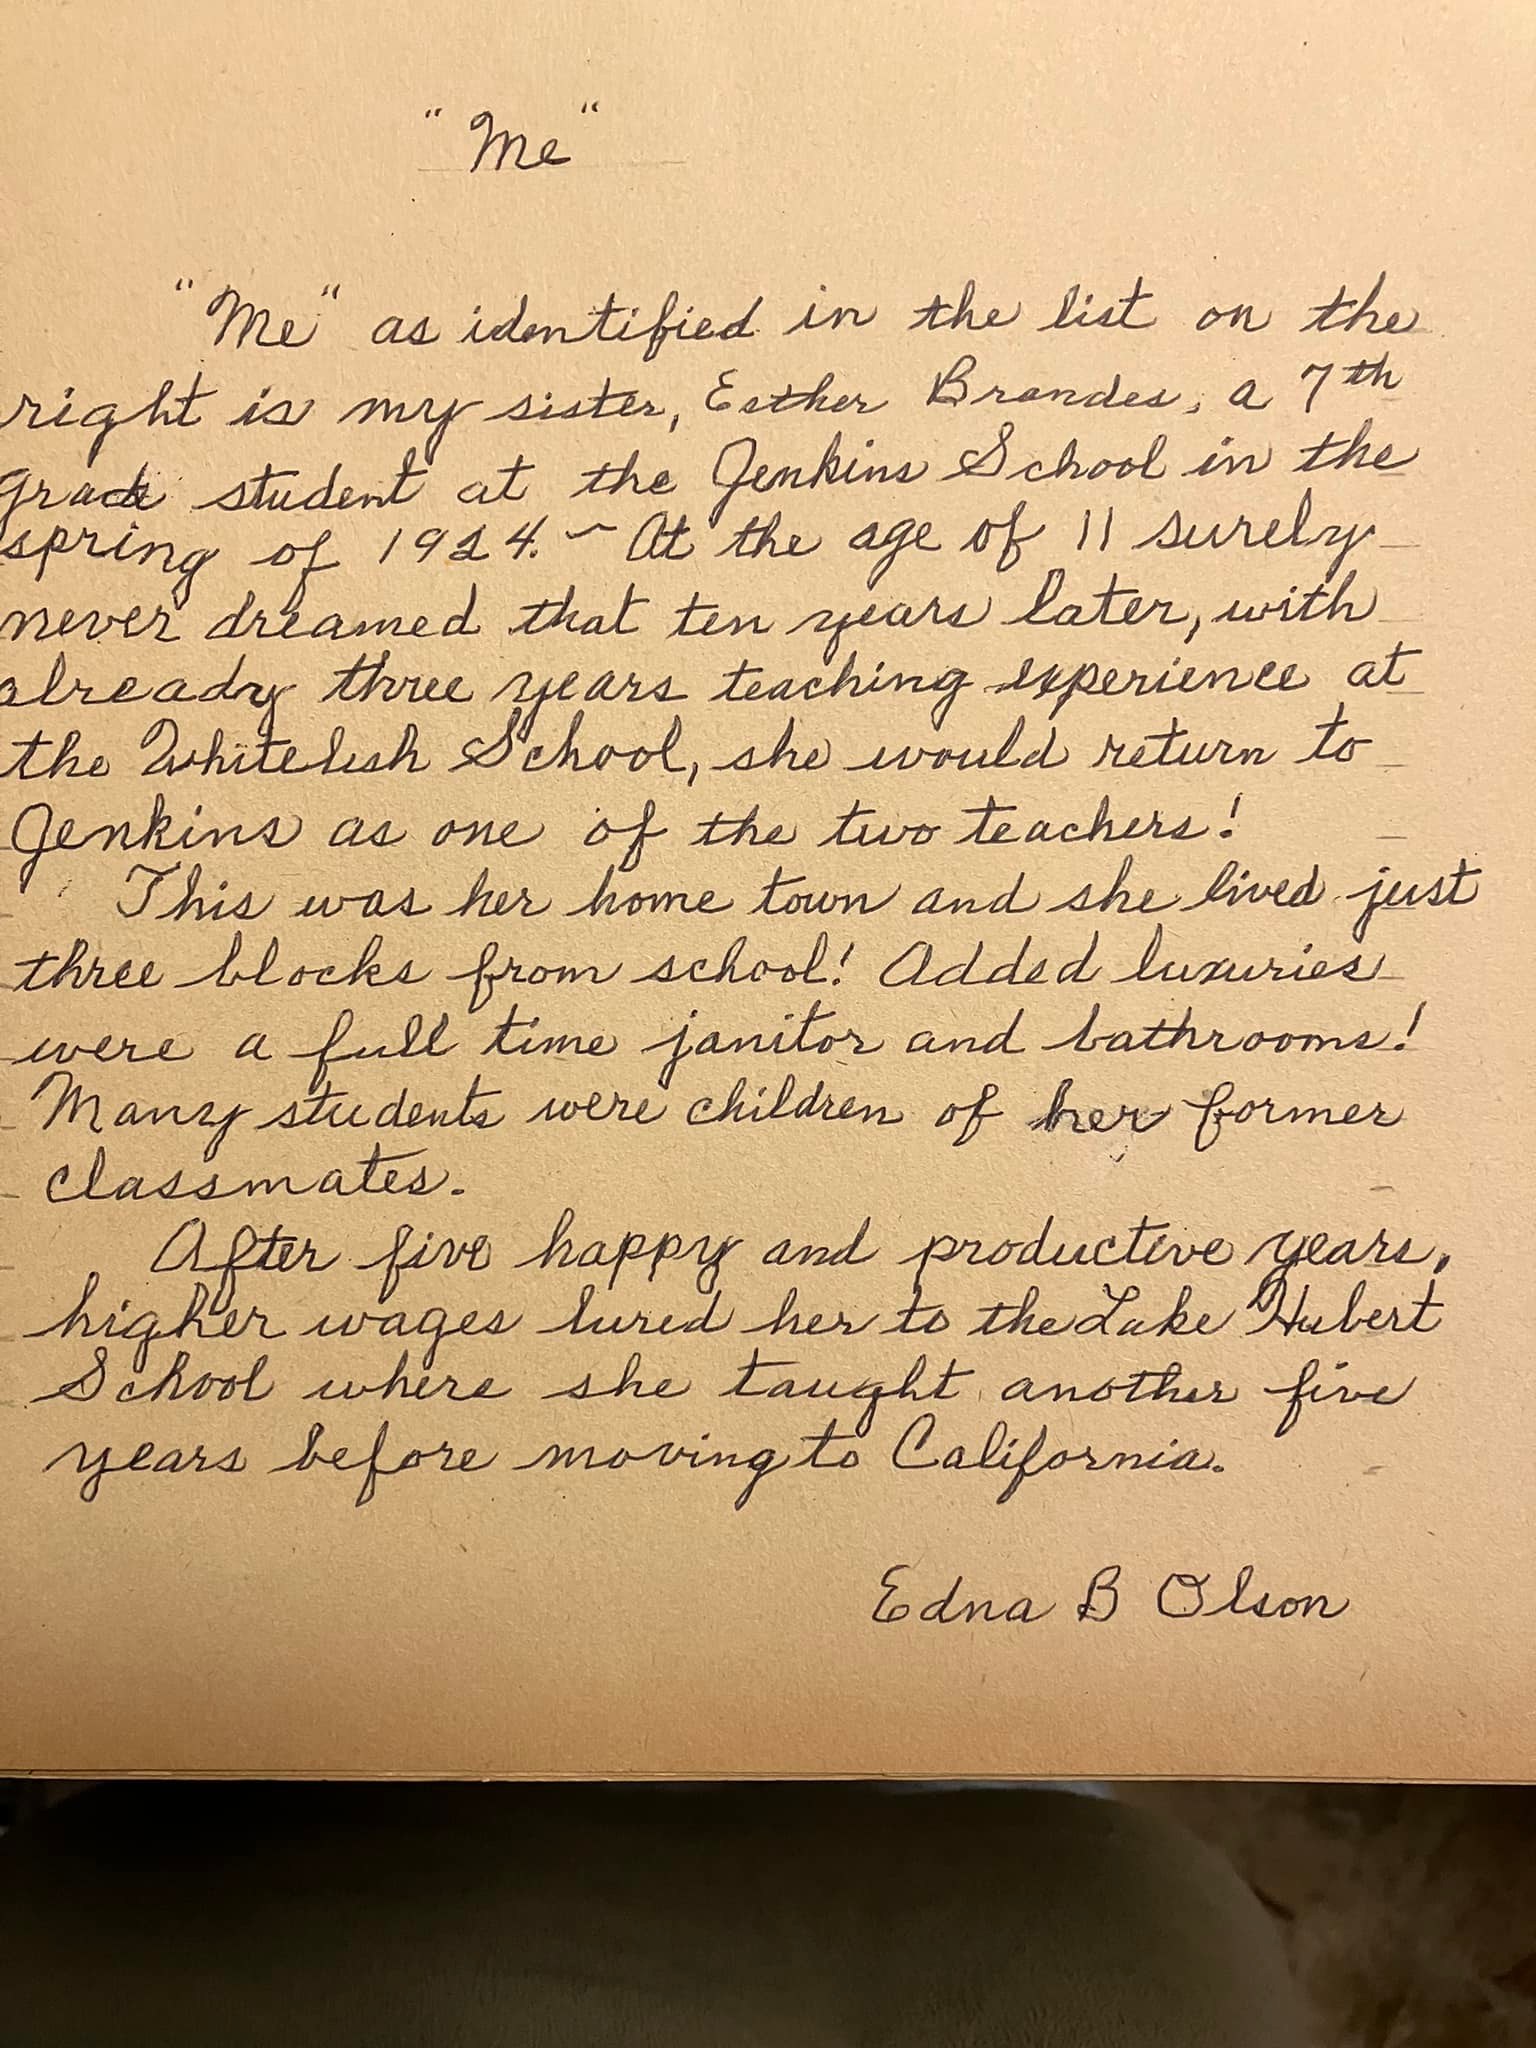 "Me"
"Me" as identified in the list on the
right is my sister, Esther Brandes, a 7th
grade student at the Jenkins School in the
spring of 1924. ~ At the age of 11 surely
never dreamed that ten years later, with
already three years teaching experience at
the Whitefish School, she would return to
Jenkins as one of the two teachers!
This was her home town and she lived just
three blocks from school! Added luxuries
were a full time janitor and bathrooms!
Many students were children of her former
classmates.
After five happy and productive years,
higher wages lured her to the Lake Hubert
School where she taught another five
years before moving to California.
Edna B Olson